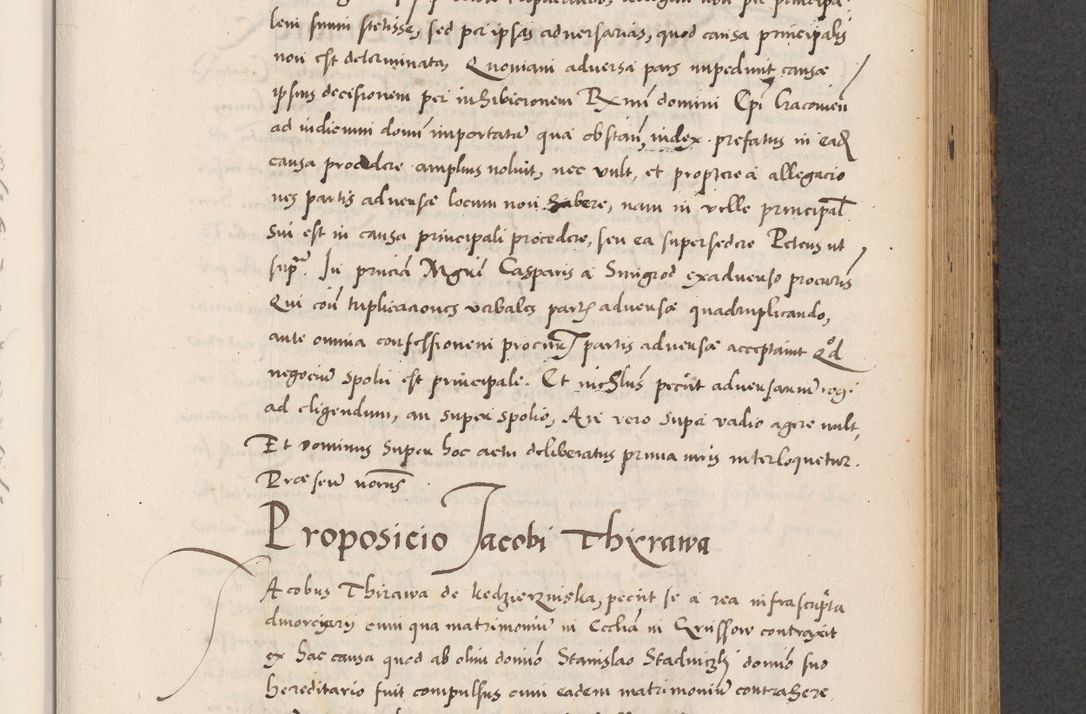 leni summ stetisse, sed per ipsas adversarias, quod causa principalis
non est determinata, Quoniam adversa pars impedivit causae
ipsius decisionem per inhibicionem Rxmi domini Epi Cracovien
ad indiemni domi importatam qua obstan, iudex prefatus in ead
causa procedere amplius noluit, nec vult, et propterea allegacio
nes partis adversae locum non habere, nam in velle principal
sui est in causa principali procedere, seu ea supersedere Petens ut
supra. In pncia Mgri Casparis a Smigrod ex adverso procuris
Qui con triplicaciones verbales partis adversae quadruplicando,
ante omnia confessionem procur partis adversae acceptavit Qd
negocium spolii est principale. Et nichilus peciit adversarium regi
ad eligendum, an super spolio, An vero super vadio agere vult,
Et dominus super hoc actu deliberatus prima iuris interloquetur.
Praesen nobis
Proposicio Jacobi Thxrawa
Jacobus Thirawa de kedzierzinska, peciit se a rea infrascripta
divorciari cum qua matrimonium in Ecclia in Grussow contraxit
ex hac causa quod ab olim domino Stanislao Stadniczki domino suo
hereditario fuit compulsus cum eadem matrimonium contrahere